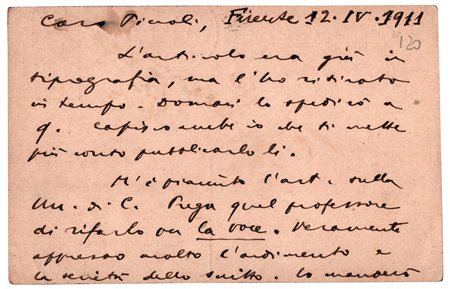 Caro Piccoli, Firenze 12.IV.1911
120
L'articolo era già in
tipografia, ma l'ho ritirato
in tempo. Domani lo spedirò a
q. Capisco anche io che ti mette
più conto pubblicarlo lì.
M'è piaciuto l'art. sulla
Un. di C. Prega quel professore
di rifarlo per la voce. Veramente
apprezzo molto l'ardimento e
la serietà dello scritto. Lo manderò